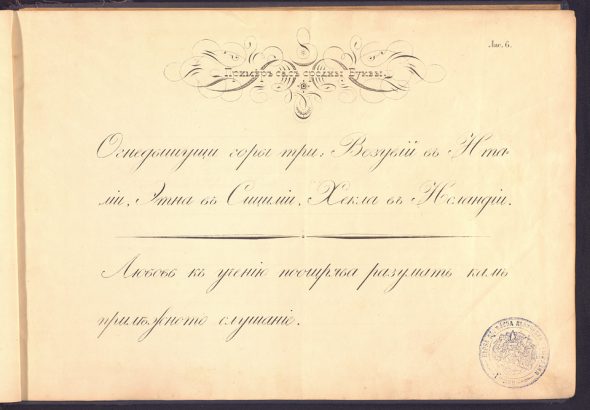 Лис. 6.
Примѣръ съсъ срѣдны Буквы.
Огнедышущи горы три: Везувій въ Ита-
ліи, Этна въ Сициліи, Хекла въ Исландіи.
Любовь къ ученію поощрява разуматъ камъ
прилѣжното слушаніе.